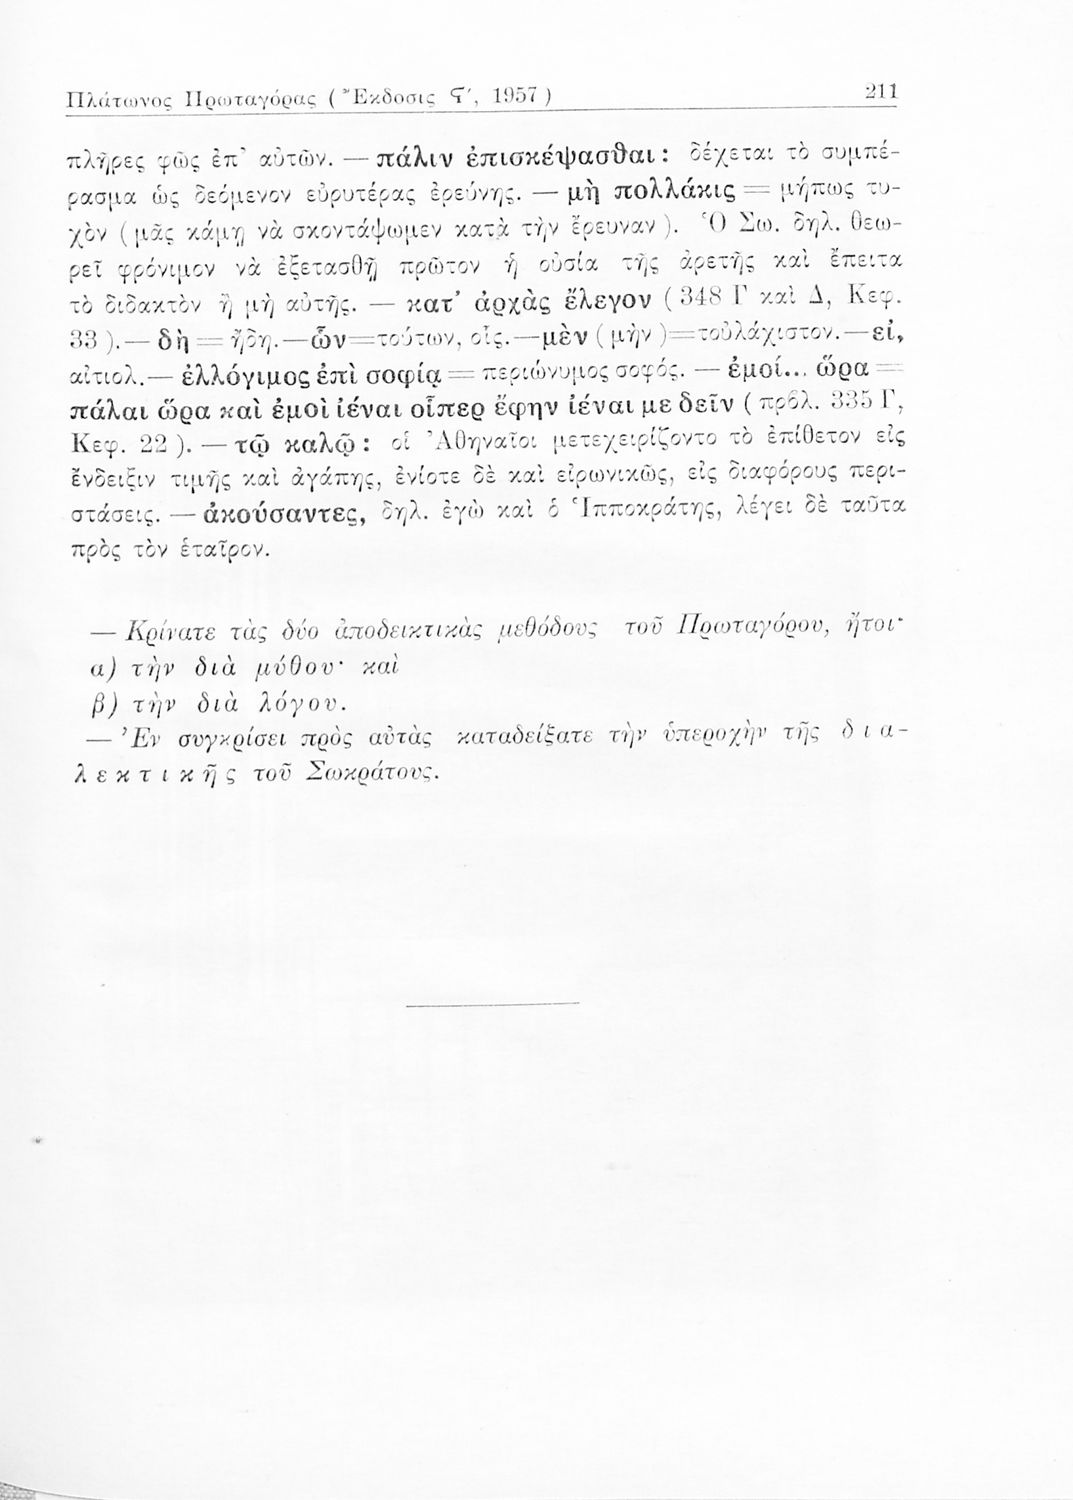 Πλάτωνος Πρωταγόρας ( Ἔκδοσις Ϛ', 1957 ) 211
πλῆρες φῶς ἐπ' αὐτῶν. — πάλιν ἐπισκέψασθαι : δέχεται τὸ συμπέ-
ρασμα ὡς δεόμενον εὐρυτέρας ἐρεύνης. — μὴ πολλάκις = μήπως τυ-
χὸν ( μᾶς κάμῃ νὰ σκοντάψωμεν κατὰ τὴν ἔρευναν ). Ὁ Σω. δηλ. θεω-
ρεῖ φρόνιμον νὰ ἐξετασθῇ πρῶτον ἡ οὐσία τῆς ἀρετῆς καὶ ἔπειτα
τὸ διδακτὸν ἢ μὴ αὐτῆς. — κατ' ἀρχὰς ἔλεγον ( 348 Γ καὶ Δ, Κεφ.
33 ).— δὴ = ἤδη.—ὧν=τούτων, οἷς.—μὲν ( μὴν )=τοὐλάχιστον.—εἰ,
αἰτιολ.— ἐλλόγιμος ἐπὶ σοφίᾳ = περιώνυμος σοφός. — ἐμοί... ὥρα =
πάλαι ὥρα καὶ ἐμοὶ ἰέναι οἷπερ ἔφην ἰέναι με δεῖν ( πρβλ. 335 Γ,
Κεφ. 22 ). — τῷ καλῷ : οἱ Ἀθηναῖοι μετεχειρίζοντο τὸ ἐπίθετον εἰς
ἔνδειξιν τιμῆς καὶ ἀγάπης, ἐνίοτε δὲ καὶ εἰρωνικῶς, εἰς διαφόρους περι-
στάσεις. — ἀκούσαντες, δηλ. ἐγὼ καὶ ὁ Ἱπποκράτης, λέγει δὲ ταῦτα
πρὸς τὸν ἑταῖρον.
— Κρίνατε τὰς δύο ἀποδεικτικὰς μεθόδους τοῦ Πρωταγόρου, ἤτοι·
α) τὴν διὰ μύθου· καὶ
β) τὴν διὰ λόγου.
— Ἐν συγκρίσει πρὸς αὐτὰς καταδείξατε τὴν ὑπεροχὴν τῆς δια-
λεκτικῆς τοῦ Σωκράτους.